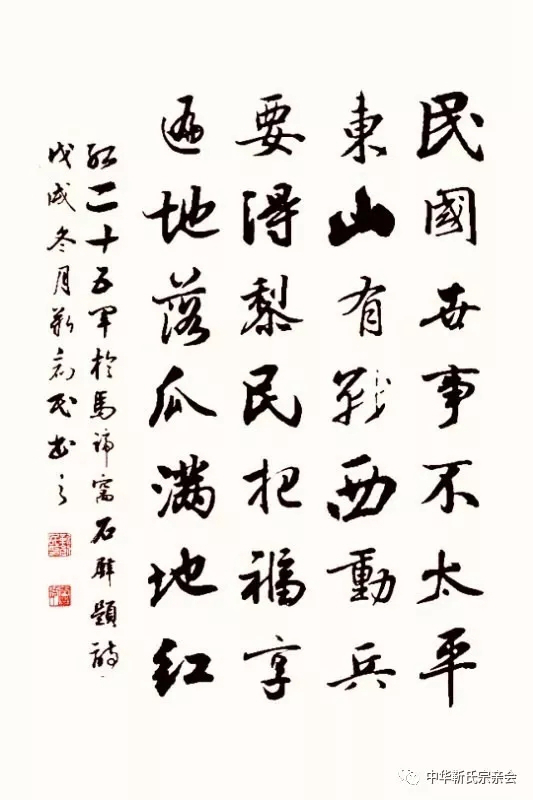 民國世事不太平
東山有戰西動兵
要得黎民把福享
遍地落瓜滿地红
红二十五軍於馬蹄窩石壁題詩
戊戌冬月靳民书之
中华靳氏宗亲会